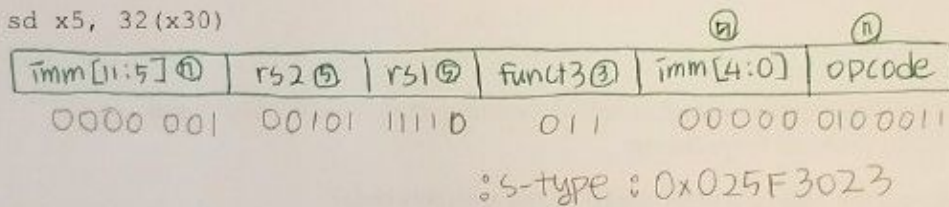 sd x5, 32(x30)
⑤ ⑦
imm[11:5] ⑦ rs2 ⑤ rs1 ⑤ funct3 ③ imm[4:0] opcode
0000 001 00101 11110 011 00000 0100011
: S-type : 0x025F3023